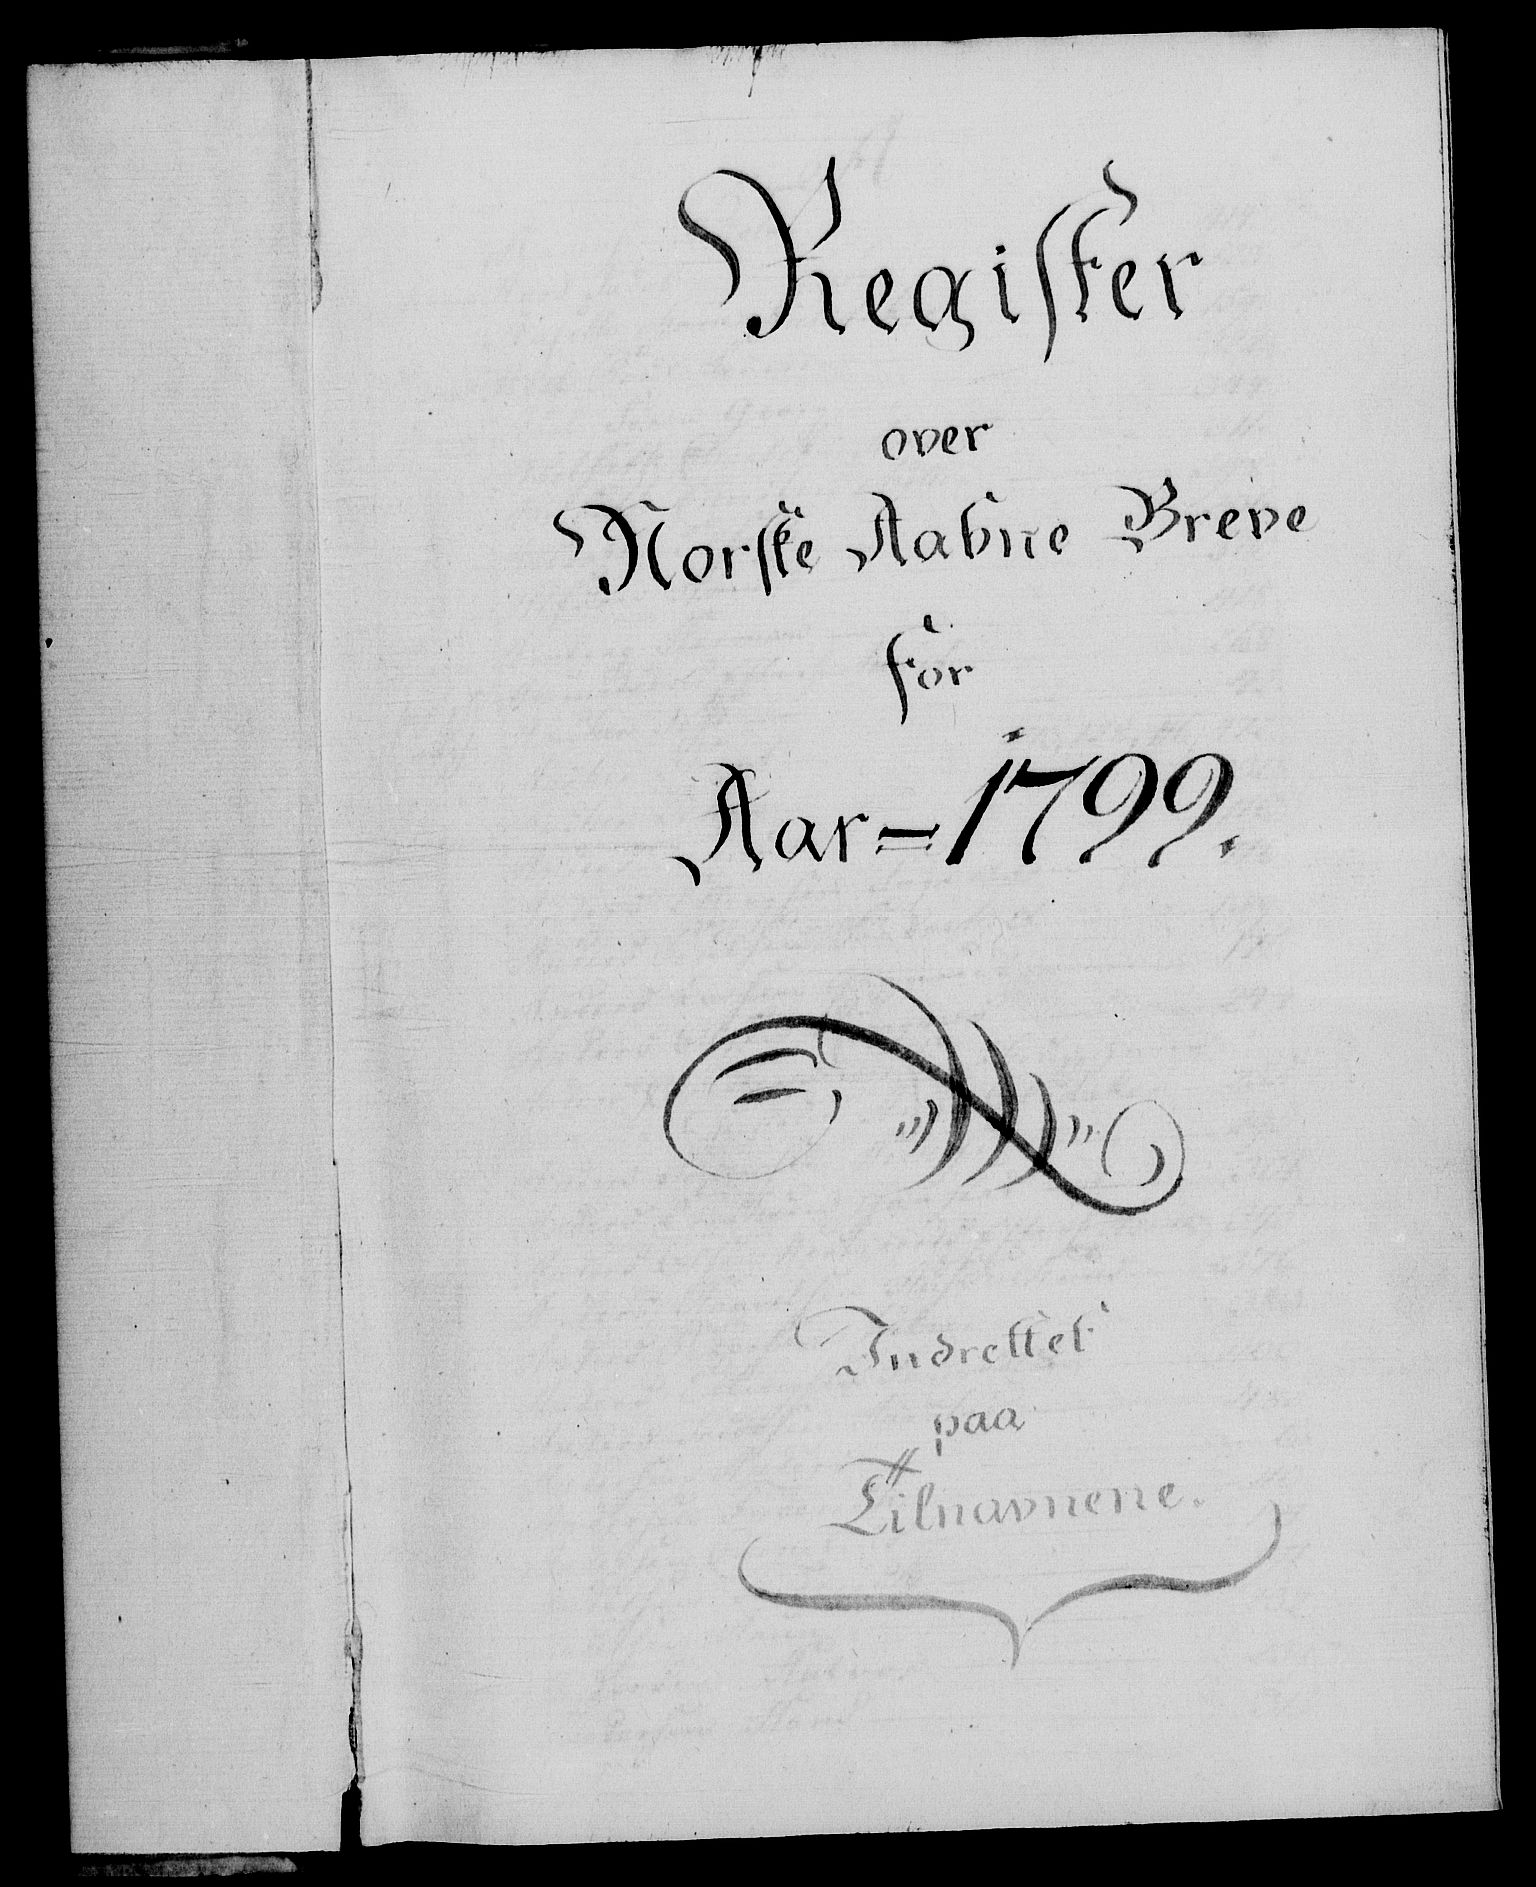 Register
over
Norske Aabne Breve
for
Aar=1799.
Indrettet
paa
Tilnavnene.